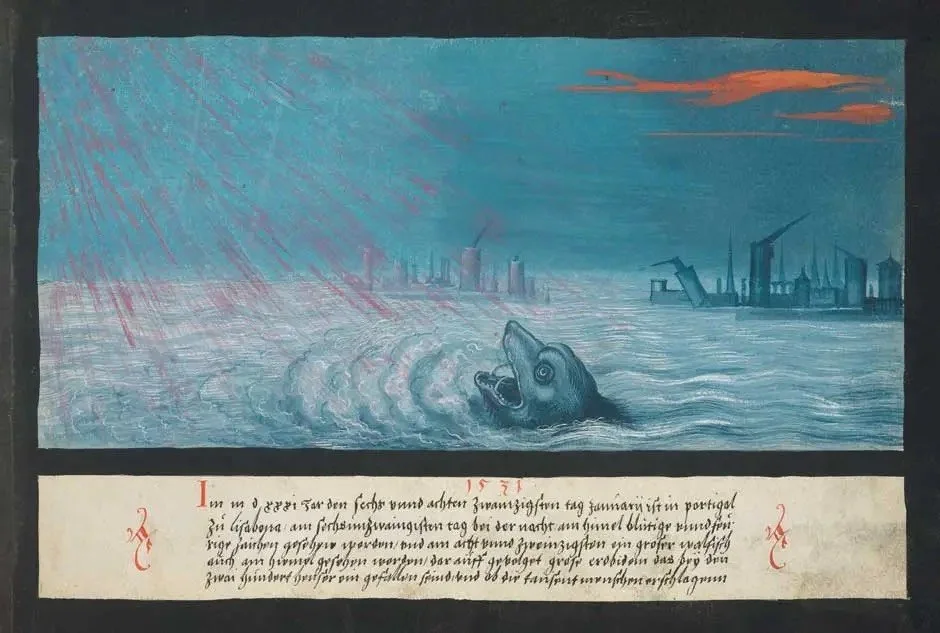 1531
Im m d xxxi Jar den sechs vnnd achten zwainzigsten tag January ist in portigal
zu lisabona am sechsvnzwaingsten tag bei der nacht am himel blütige vnnd feü
rige zaichen gesehen worden / vnd am acht vnnd zweinzigsten ein groser walfisch
auch am himel gesehen worden / dar auff gevolget grose erdbidem das bey den
zwai hundert heuser ein gefallen seind / vnd ob die tausent menschen erschlagenn